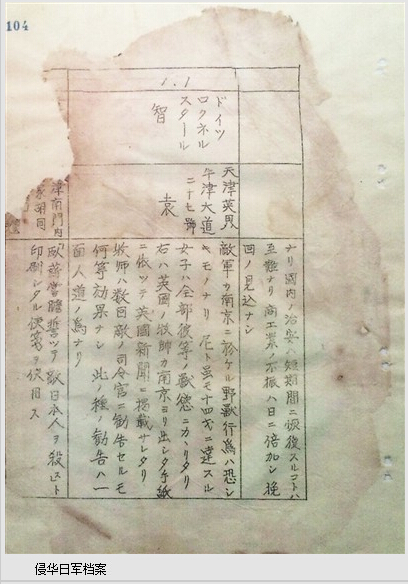 104
1.1
ドイツ
ロクネル
スタール
智
天津英界
牛津大道
二十七號
袁
ナリ國内ノ治安ハ短期間ニ恢復スルコトハ
至難ナリ商工業ノ不振ハ日ニ倍加シ挽
回ノ見込ナシ
敵軍カ南京ニ於ケル野獸行為ハ恐シ
キモノナリ 尼ト虽モ十四才ニ達スル
女子ハ全部彼等ノ獸慾ニカヽリタリ
右ハ英國ノ牧師カ南京ヨリ出シタ手紙
ニ依ツテ英國新聞ニ掲載サレタリ
牧師ハ数回敵ノ司令官ニ勧告セルモ
何等効果ナシ 此ノ種ノ勧告ハ一
面人道ノ為ナリ
津南門内
胡同
臥薪嘗膽誓ツテ敵日本人ヲ殺セト
印刷シタル便箋ヲ使用ス
侵华日军档案